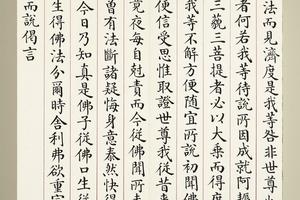 法而見濟度是我等咎非世尊
者何若我等待說所因成就阿耨
三藐三菩提者必以大乘而得度
我等不解方便隨宜所說初聞佛
便信受思惟取證世尊我從昔來
竟夜每自剋責而今從佛聞所未
曾有法斷諸疑悔身意泰然快得
今日乃知真是佛子從佛口生從
生得佛法分爾時舍利弗欲重宣
而說偈言